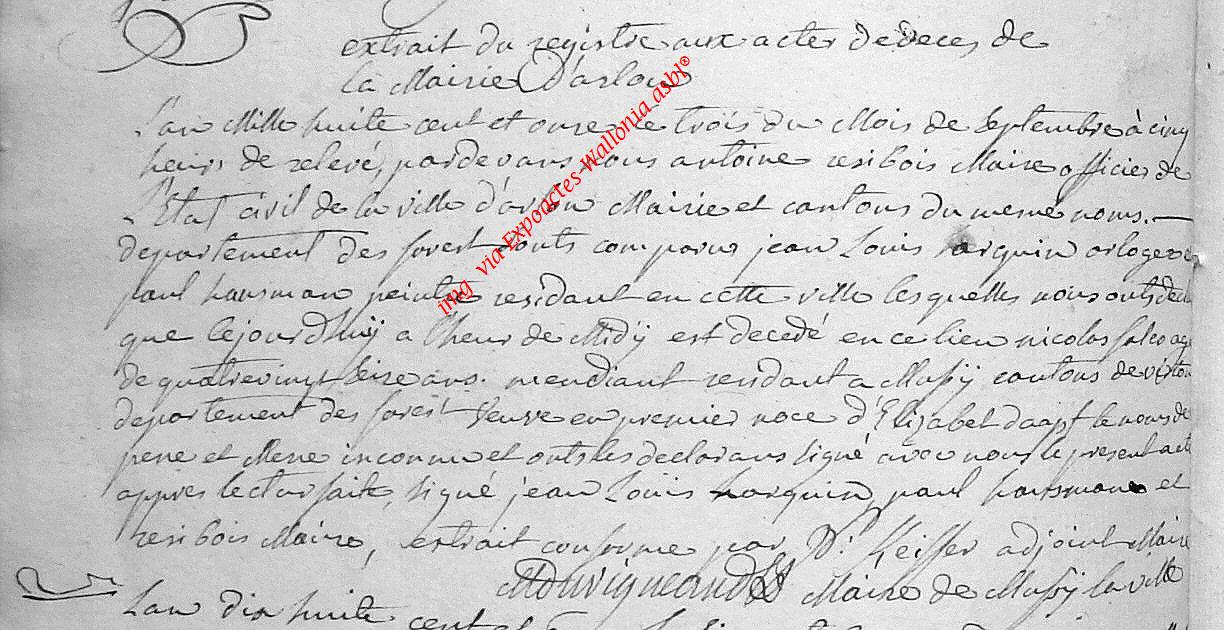 extrait du registre aux actes de deces de
la Mairie D'arlon
L'an Mille huite cent et onze le trois du Mois de Septembre à cinq
heurs de relevé, pardevans nous antoine resibois Maire officier de
L'Etat civil de la ville d'arlon Mairie et cantons du mesme noms.
departement des forest sonts comparus jean Louis Larquin orloger et
paul hansman peintre residant en cette ville lesquelles nous onts decl
que lejourdhuÿ a l'heur de Midÿ est decedé en ce lieu nicolas age
de quatrevingt seize ans. mendiant resident a Mussÿ cantons de virton
departement des forest veuve en premier noce d'Elizabet le noms de
pere et Mere inconnu et onts les declarans signé avec nous le present acte
appres lectur faite, signé jean Louis Larquin, paul hansman et
resibois Maire, extrait conforme par Keiffer adjoint Maire
MDuvigneaud Maire de Mussÿ la ville
L'an dix huite cent
img via Expoactes-Wallonia asbl®